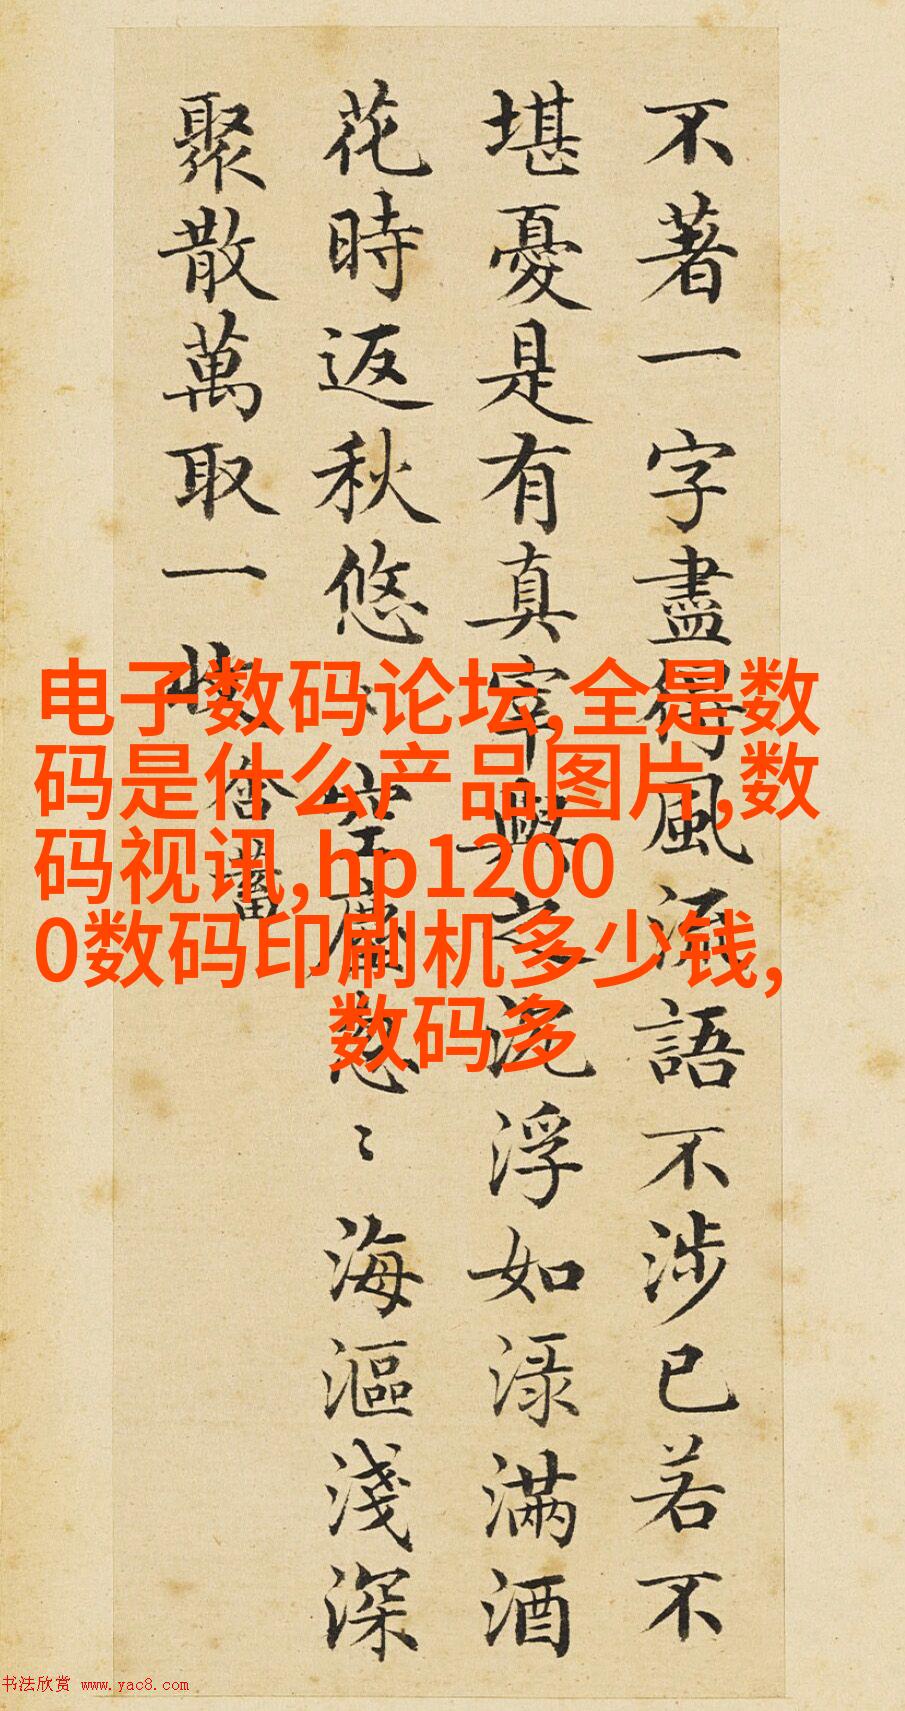 不著一字盡得風流語不涉已若不
堪憂是有真宰與之沉浮如渌滿酒
花時返秋悠〻空塵忽〻海漚淺深
聚散萬取一收
含蓄
电子数码论坛,全是数
码是什么产品图片,数
码视讯,hp1200
0数码印刷机多少钱,
数码多
书法欣赏 www.yac8.com